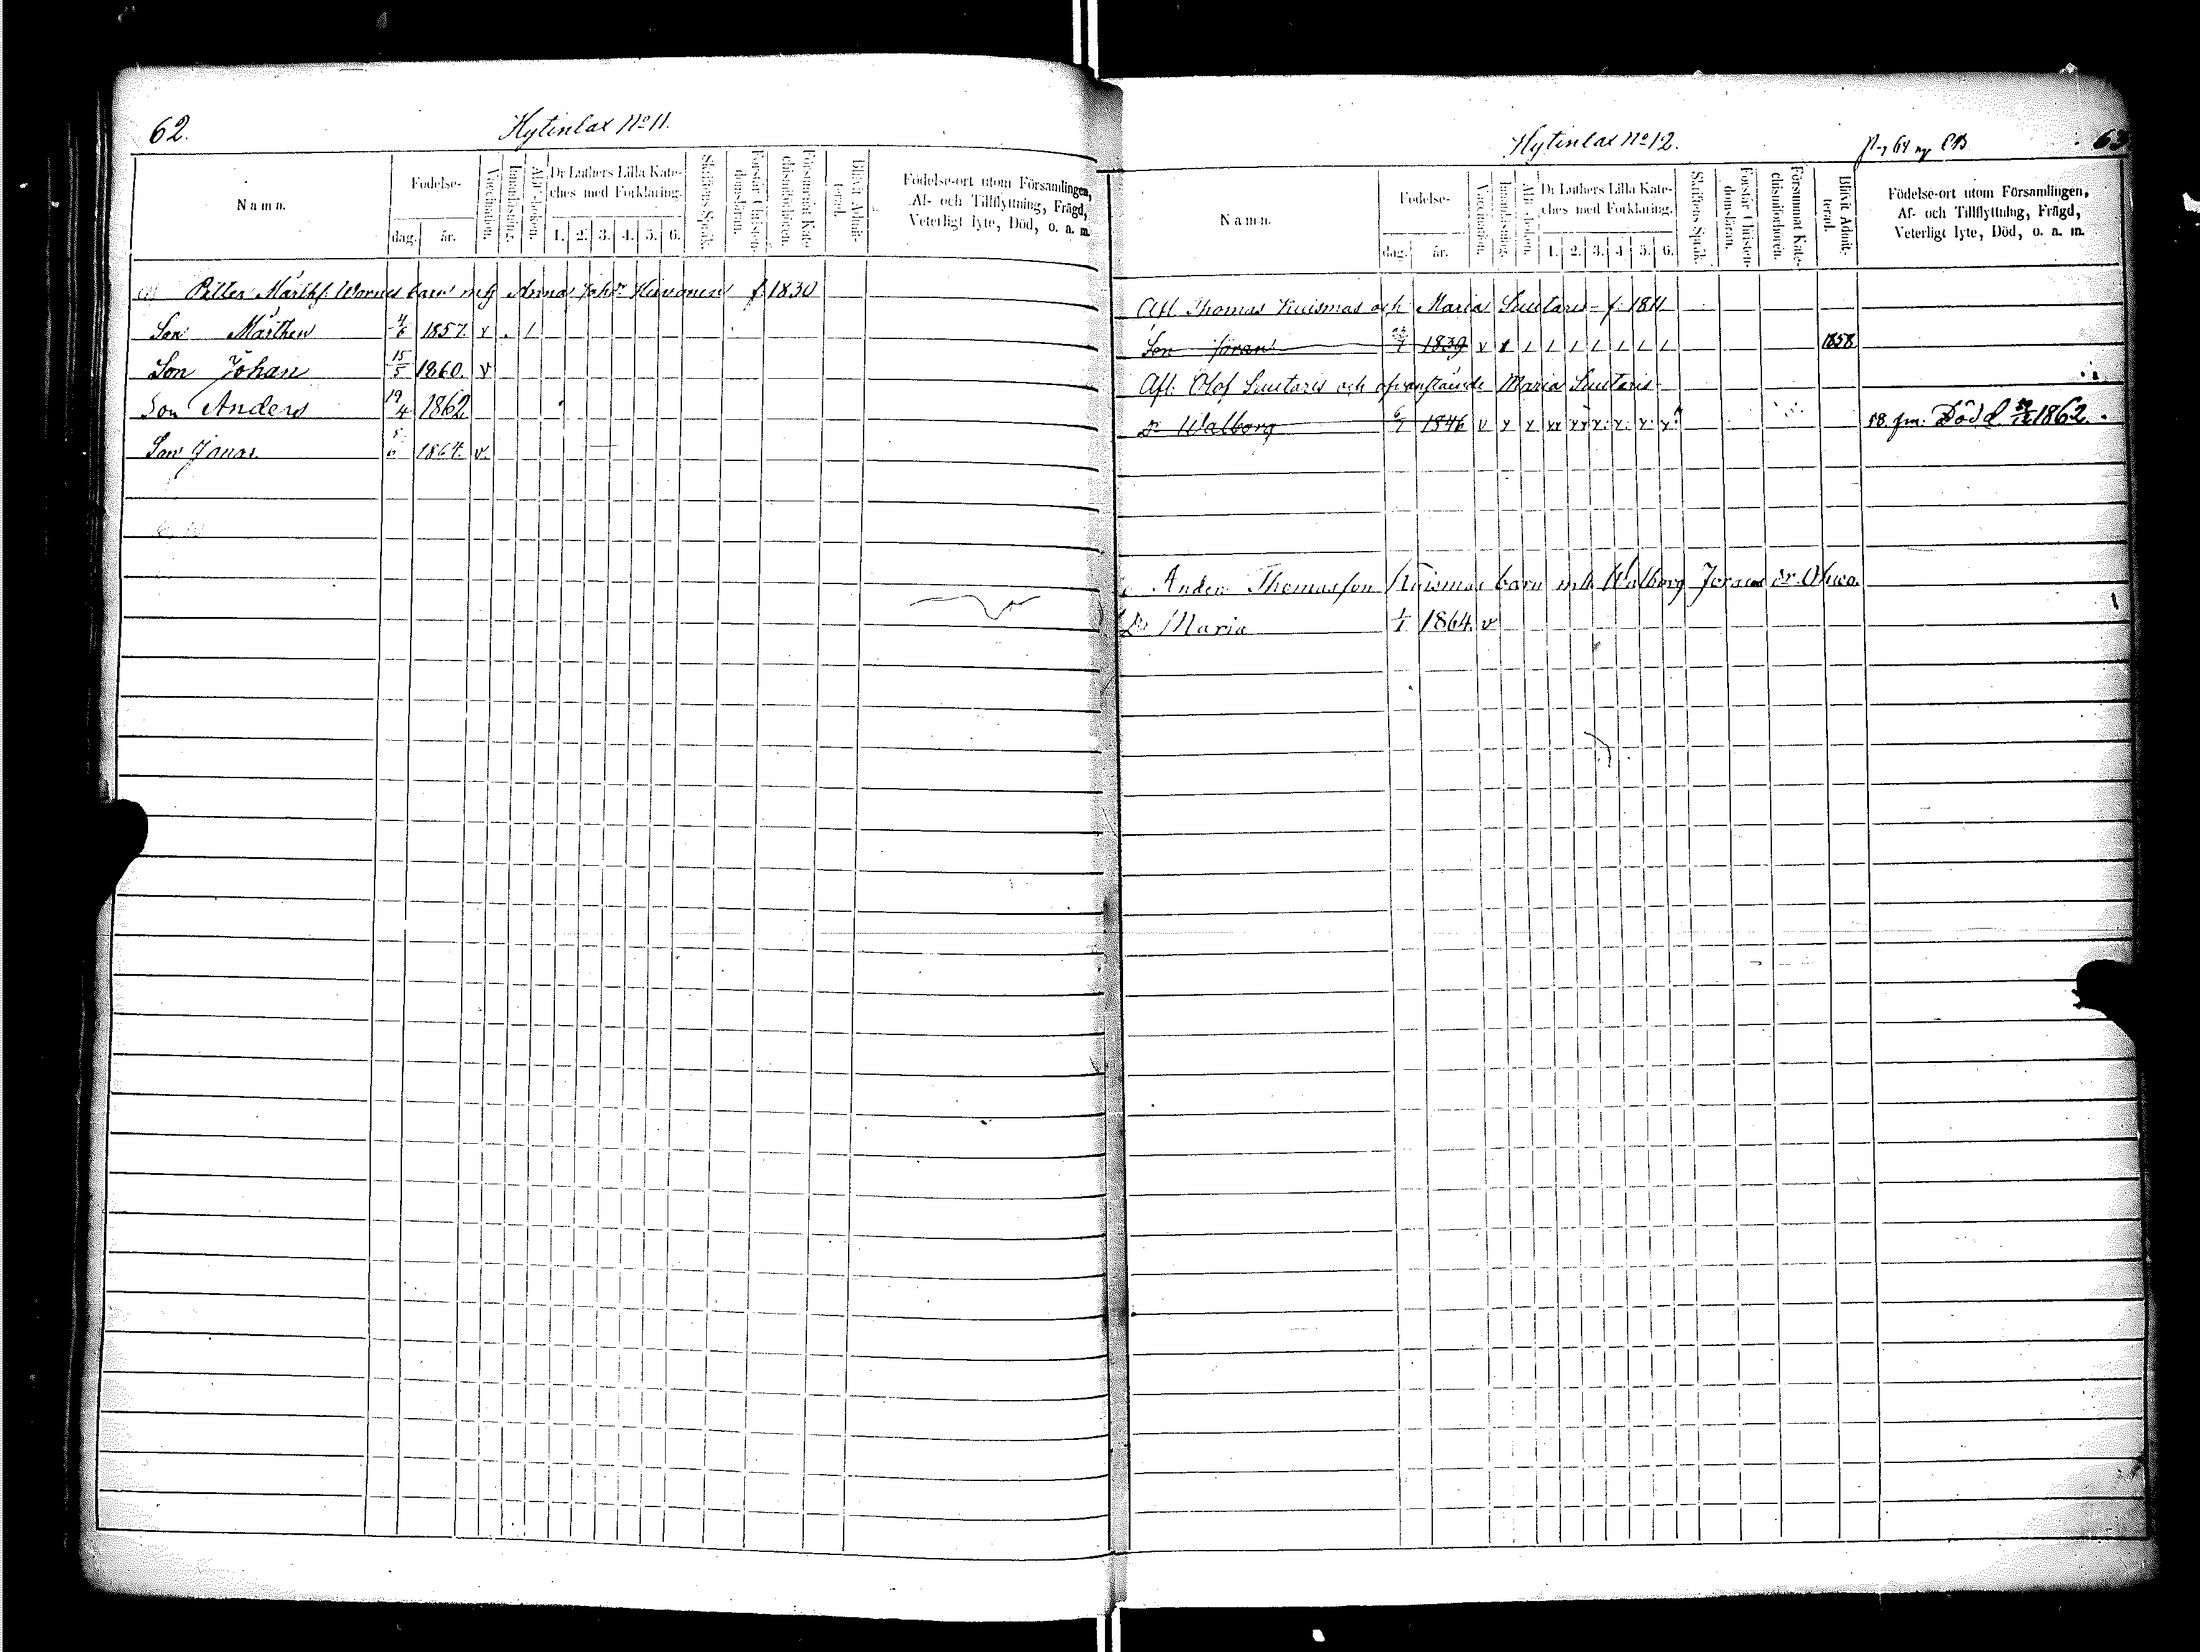 62.
Hytinlax No 11.
Namn.
Födelse-
dag.
år.
Vaccination.
Innanläsning.
Abc-boken.
Dr Luthers Lilla Kate-
ches med Förklaring.
1. 2. 3. 4. 5. 6.
Skriftens Språk.
Förstår Christen-
domsläran.
Försummat Kate-
chismiförhören.
Blifvit Admit-
terad.
Födelse-ort utom Församlingen,
Af- och Tillflyttning, Frägd,
Veterligt lyte, Död, o. a. m.
Petter Märthf. barn m. Anna Johdr f. 1830
Son Märthen 4/6 1857. v . 1
Son Johan 15/5 1860. v
Son Anders 19/4 1862
Son Jonas 5/6 1864. v.
Hytinlax No 12.
63
Namn.
Födelse-
dag.
år.
Vaccination.
Innanläsning.
Abc-boken.
Dr Luthers Lilla Kate-
ches med Förklaring.
1. 2. 3. 4. 5. 6.
Skriftens Språk.
Förstår Christen-
domsläran.
Försummat Kate-
chismiförhören.
Blifvit Admit-
terad.
Födelse-ort utom Församlingen,
Af- och Tillflyttning, Frägd,
Veterligt lyte, Död, o. a. m.
Afl. Thomas Kuismas och Maria Suutaris f. 1811
Son Jöran 1839 v x 1 1 1 1 1 1 1 1858
Afl. Olof Suutaris och ofvanstående Maria Suutaris
Dr Walborg 6/7 1846 v x x xx xx x. x. x. x. Död 1862.
Anders Thomasson Kuismas barn m. Walborg Jörans dr.
Dr Maria 1/1 1864. v